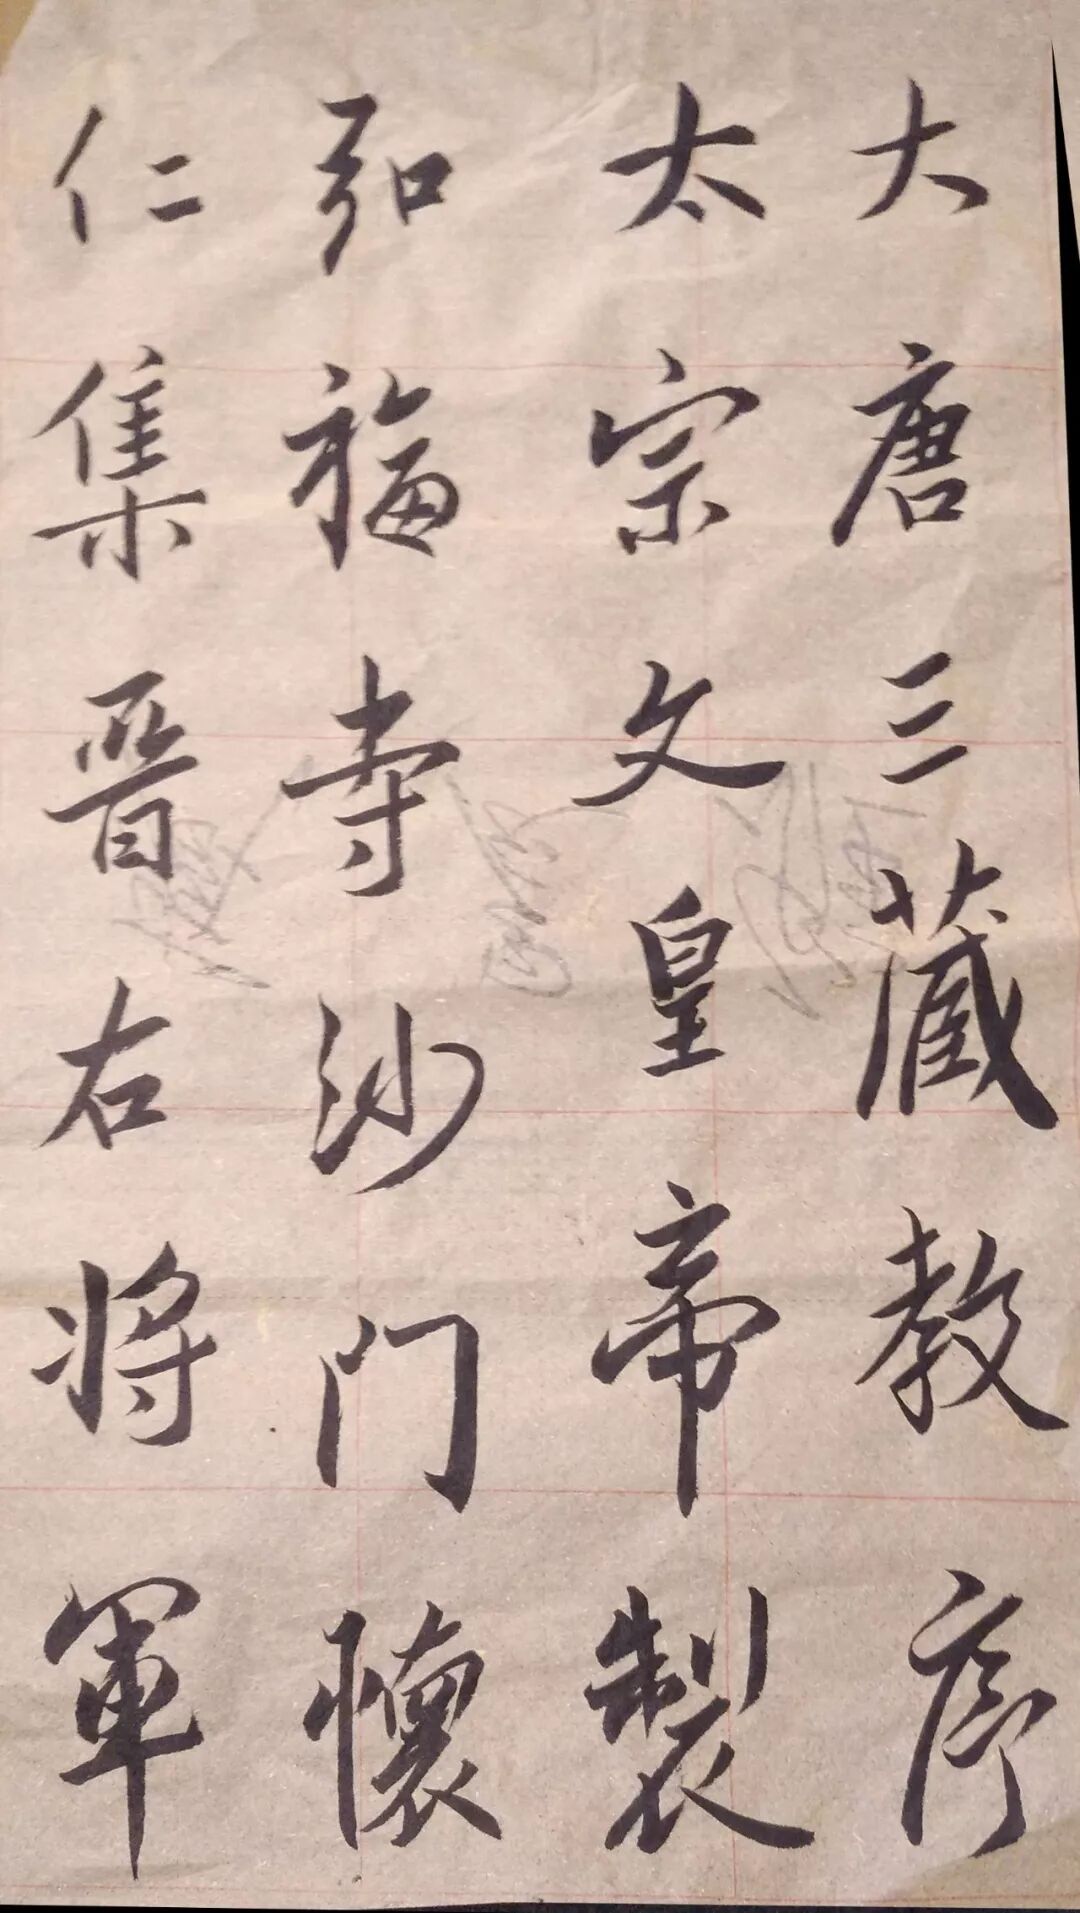 大唐三藏教序
太宗文皇帝製
弘福寺沙门懷
仁集晋右将軍